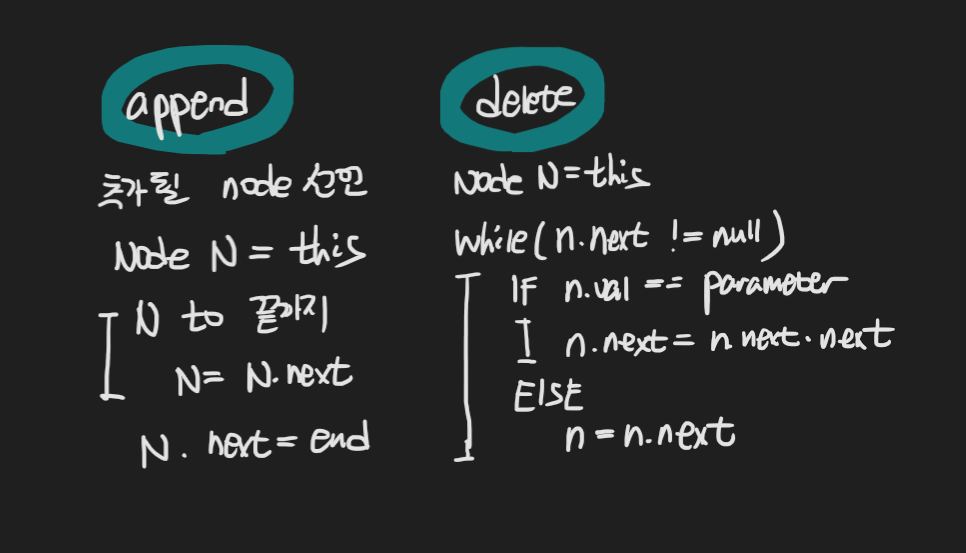 append
추가될 node 선언
Node N = this
N to 끝까지
N= N.next
N. next = end
delete
Node N = this
while( n.next != null )
IF n.val == parameter
n.next = n.next.next
ElSE
n = n.next